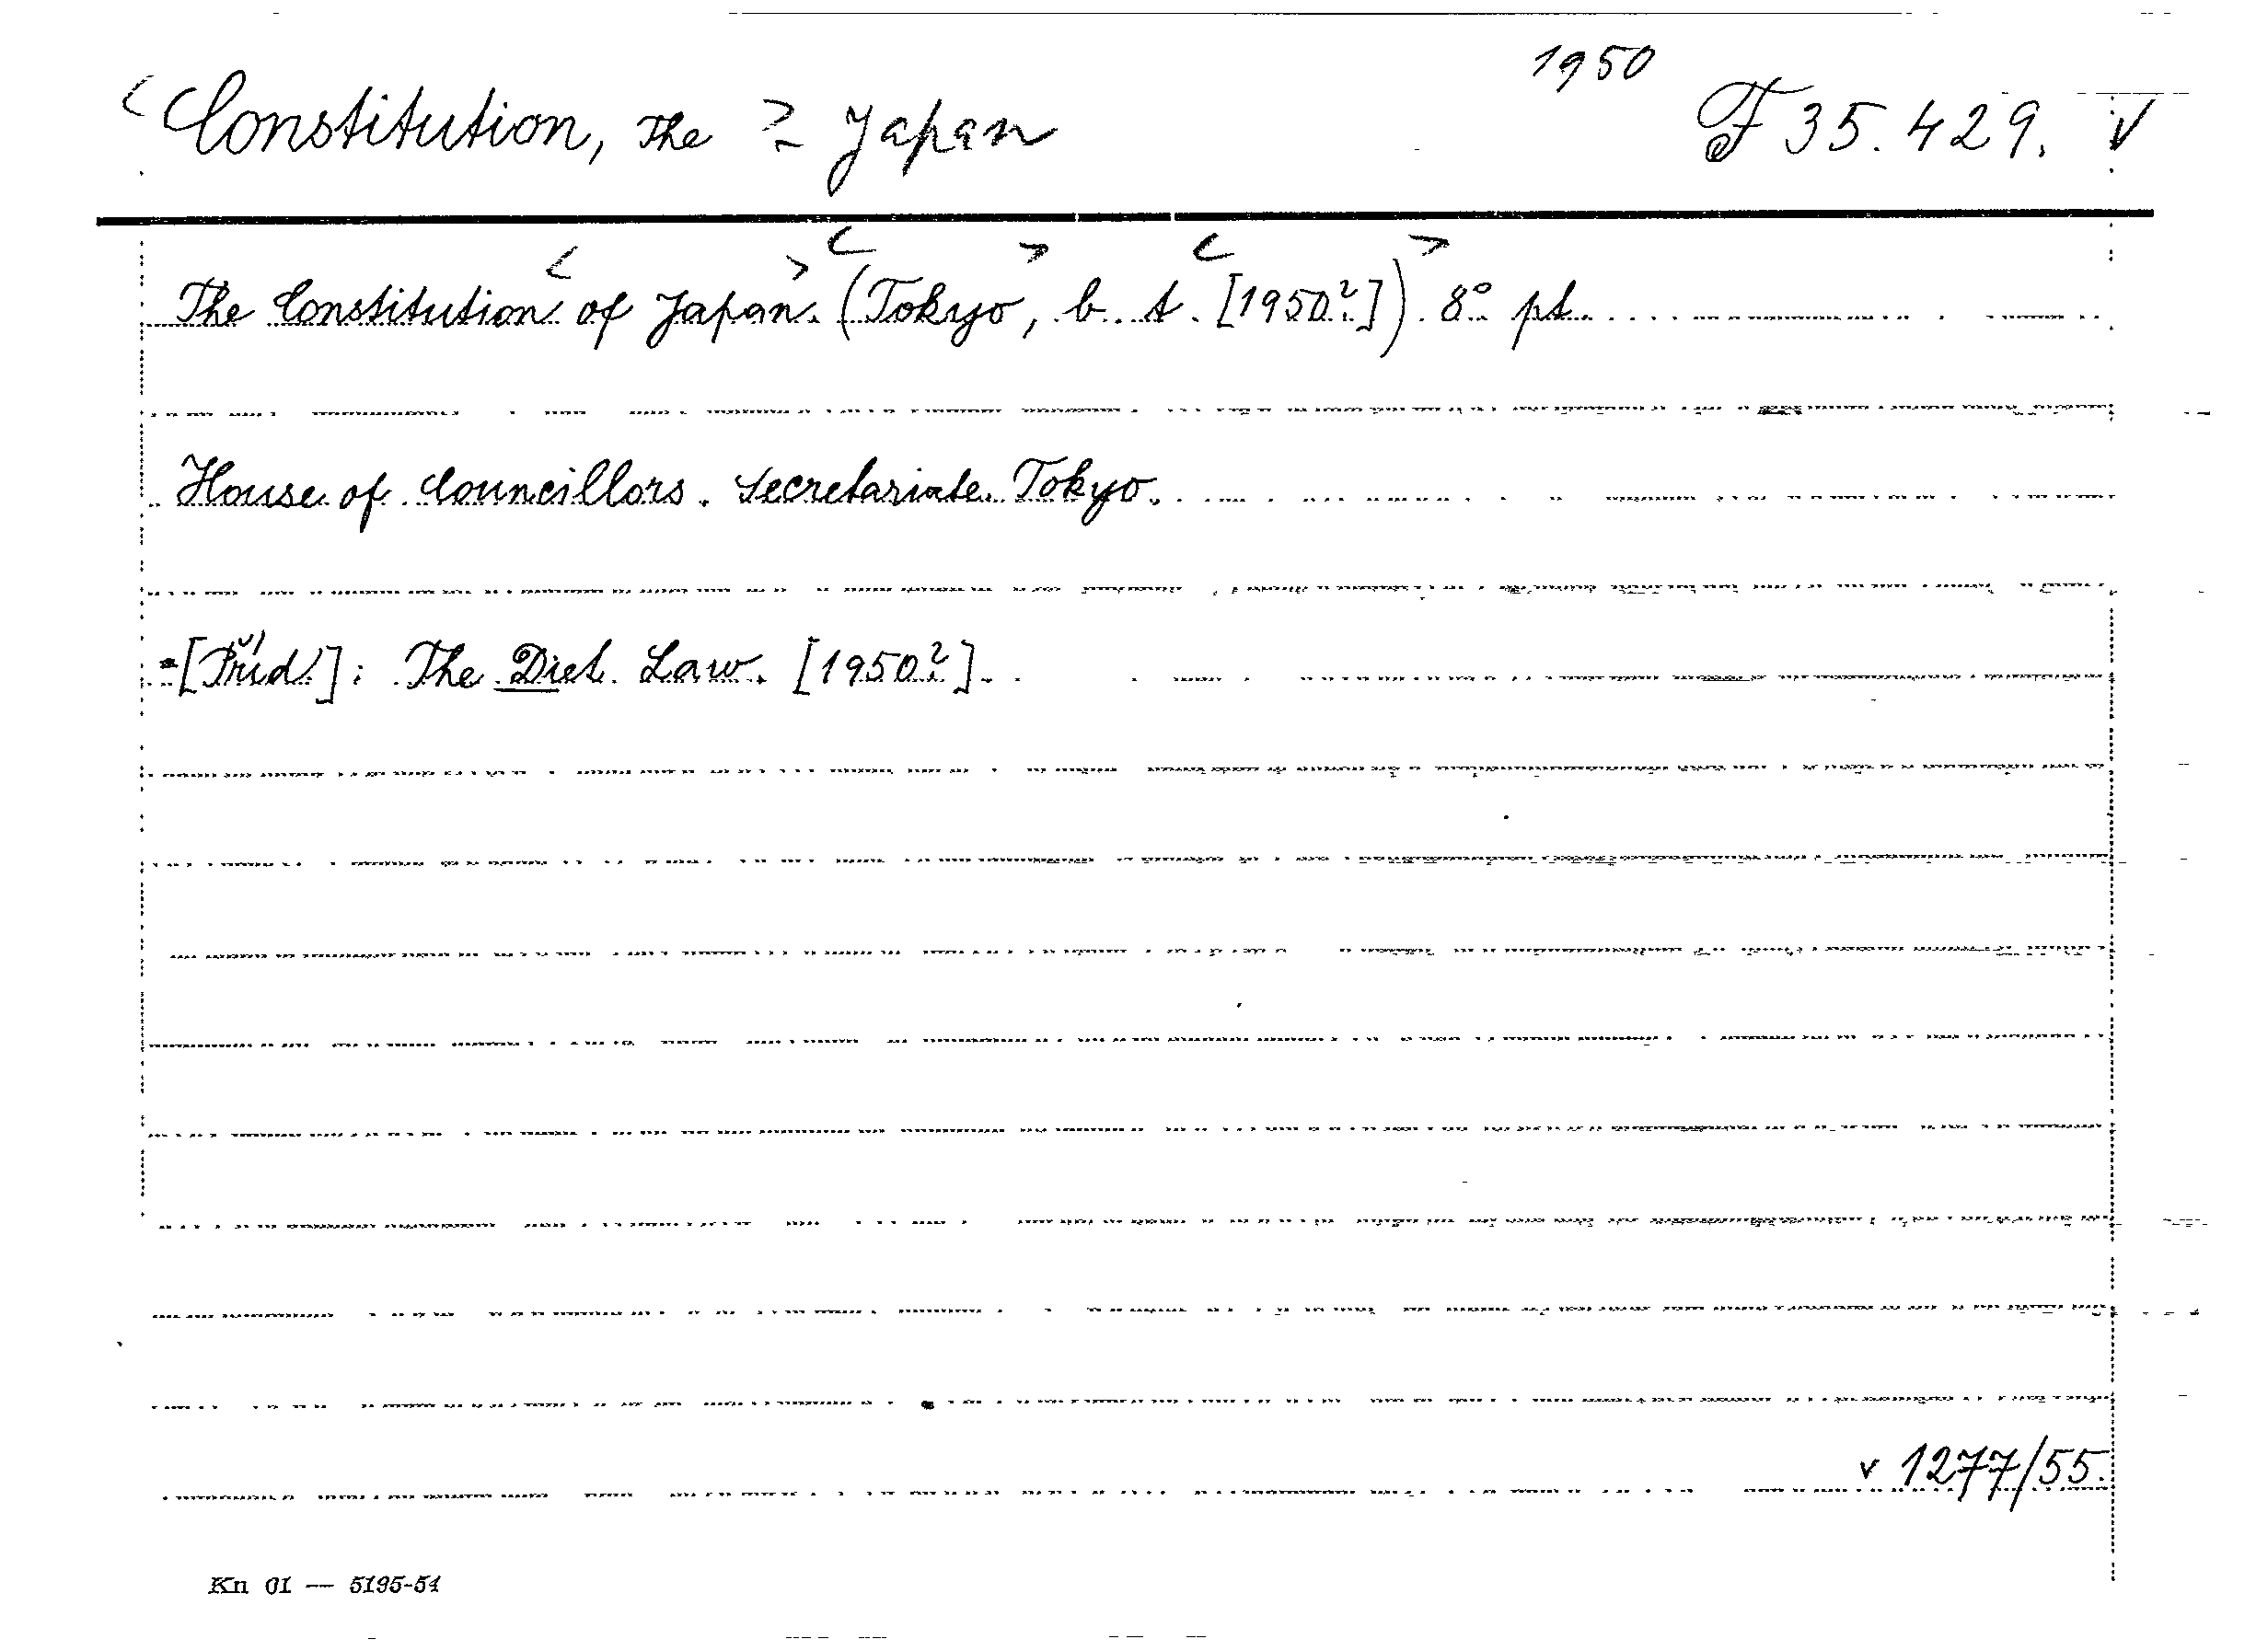 1950
<Constitution, The > - Japan F 35.429. v
The Constitution < of Japan. > < (Tokyo, > b. t. < [1950?]) > 8° pt.
House of Councillors. Secretariate. Tokyo.
-[Příd.]: The Diet Law. [1950?].
v 1277/55.
Kn 01 — 5195-54